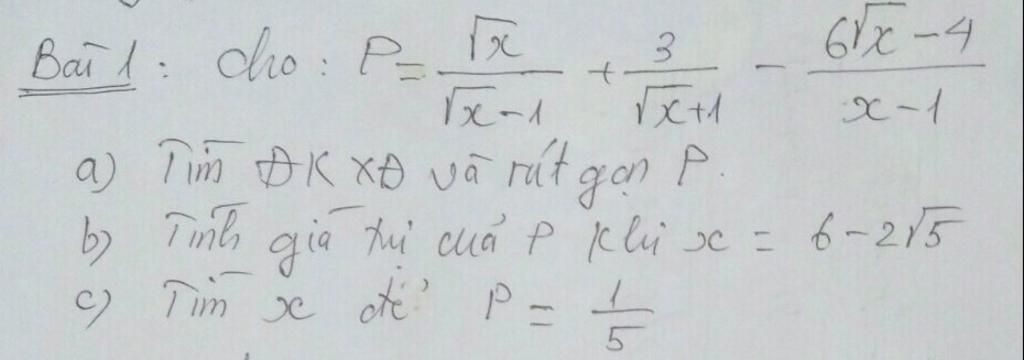 Bài 1: Cho: P = \frac{\sqrt{x}}{\sqrt{x}-1} + \frac{3}{\sqrt{x}+1} - \frac{6\sqrt{x}-4}{x-1}
a) Tìm ĐKXĐ và rút gọn P.
b) Tính giá trị của P khi x = 6-2\sqrt{5}
c) Tìm x để P = \frac{1}{5}